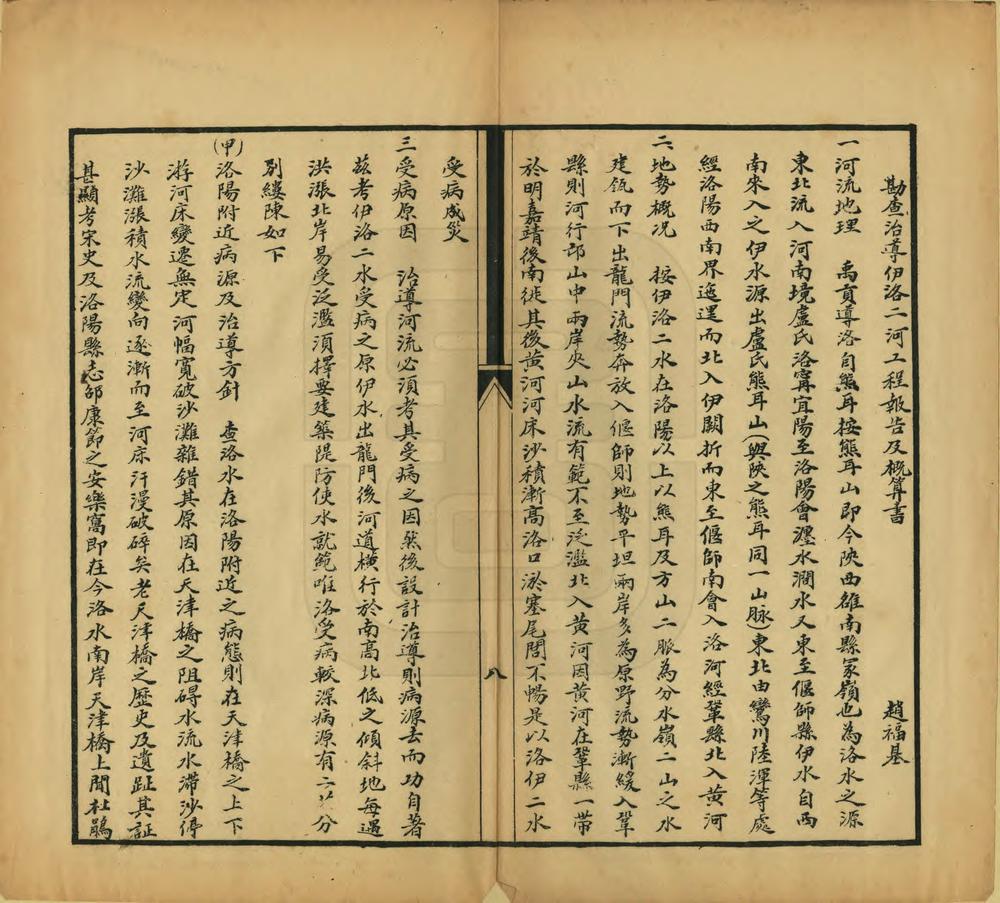 勘查治導伊洛二河工程報告及概算書　趙福基
一河流地理　禹貢導洛自熊耳按熊耳山即今陜西雒南縣冢嶺也為洛水之源
東北流入河南境盧氏洛寧宜陽至洛陽會瀍水澗水又東至偃師縣伊水自西
南來入之伊水源出盧氏熊耳山(與陜之熊耳同一山脈)東北由鸞川陸渾等處
經洛陽西南界迤邐而北入伊闕折而東至偃師南會入洛河經鞏縣北入黃河
二地勢概況　按伊洛二水在洛陽以上以熊耳及方山二脈為分水嶺二山之水
建瓴而下出龍門流勢奔放入偃師則地勢平坦兩岸多為原野流勢漸緩入鞏
縣則河行邙山中兩岸夾山水流有範不至泛濫北入黃河因黃河在鞏縣一帶
於明嘉靖後南徙其後黃河河床沙積漸高洛口淤塞尾閭不暢是以洛伊二水
八
受病成災
三受病原因　治導河流必須考其受病之因然後設計治導則病源去而功自著
茲考伊洛二水受病之原伊水出龍門後河道橫行於南高北低之傾斜地每遇
洪漲北岸易受泛濫須擇要建築隄防使水就範唯洛受病較深病源有二茲分
別縷陳如下
(甲)洛陽附近病源及治導方針　查洛水在洛陽附近之病態則在天津橋之上下
游河床變遷無定河幅寬破沙灘雜錯其原因在天津橋之阻碍水流水滯沙停
沙灘漲積水流變向逐漸而至河床汗漫破碎矣老天津橋之歷史及遺趾其証
甚顯考宋史及洛陽縣志邵康節之安樂窩即在今洛水南岸天津橋上聞杜鵑